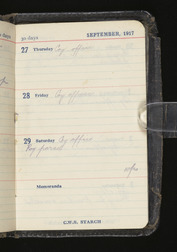 days
30 days
SEPTEMBER, 1917
27 Thursday By office
28 Friday By office
29 Saturday By office
By parcel
Memoranda
C.W.S. STARCH